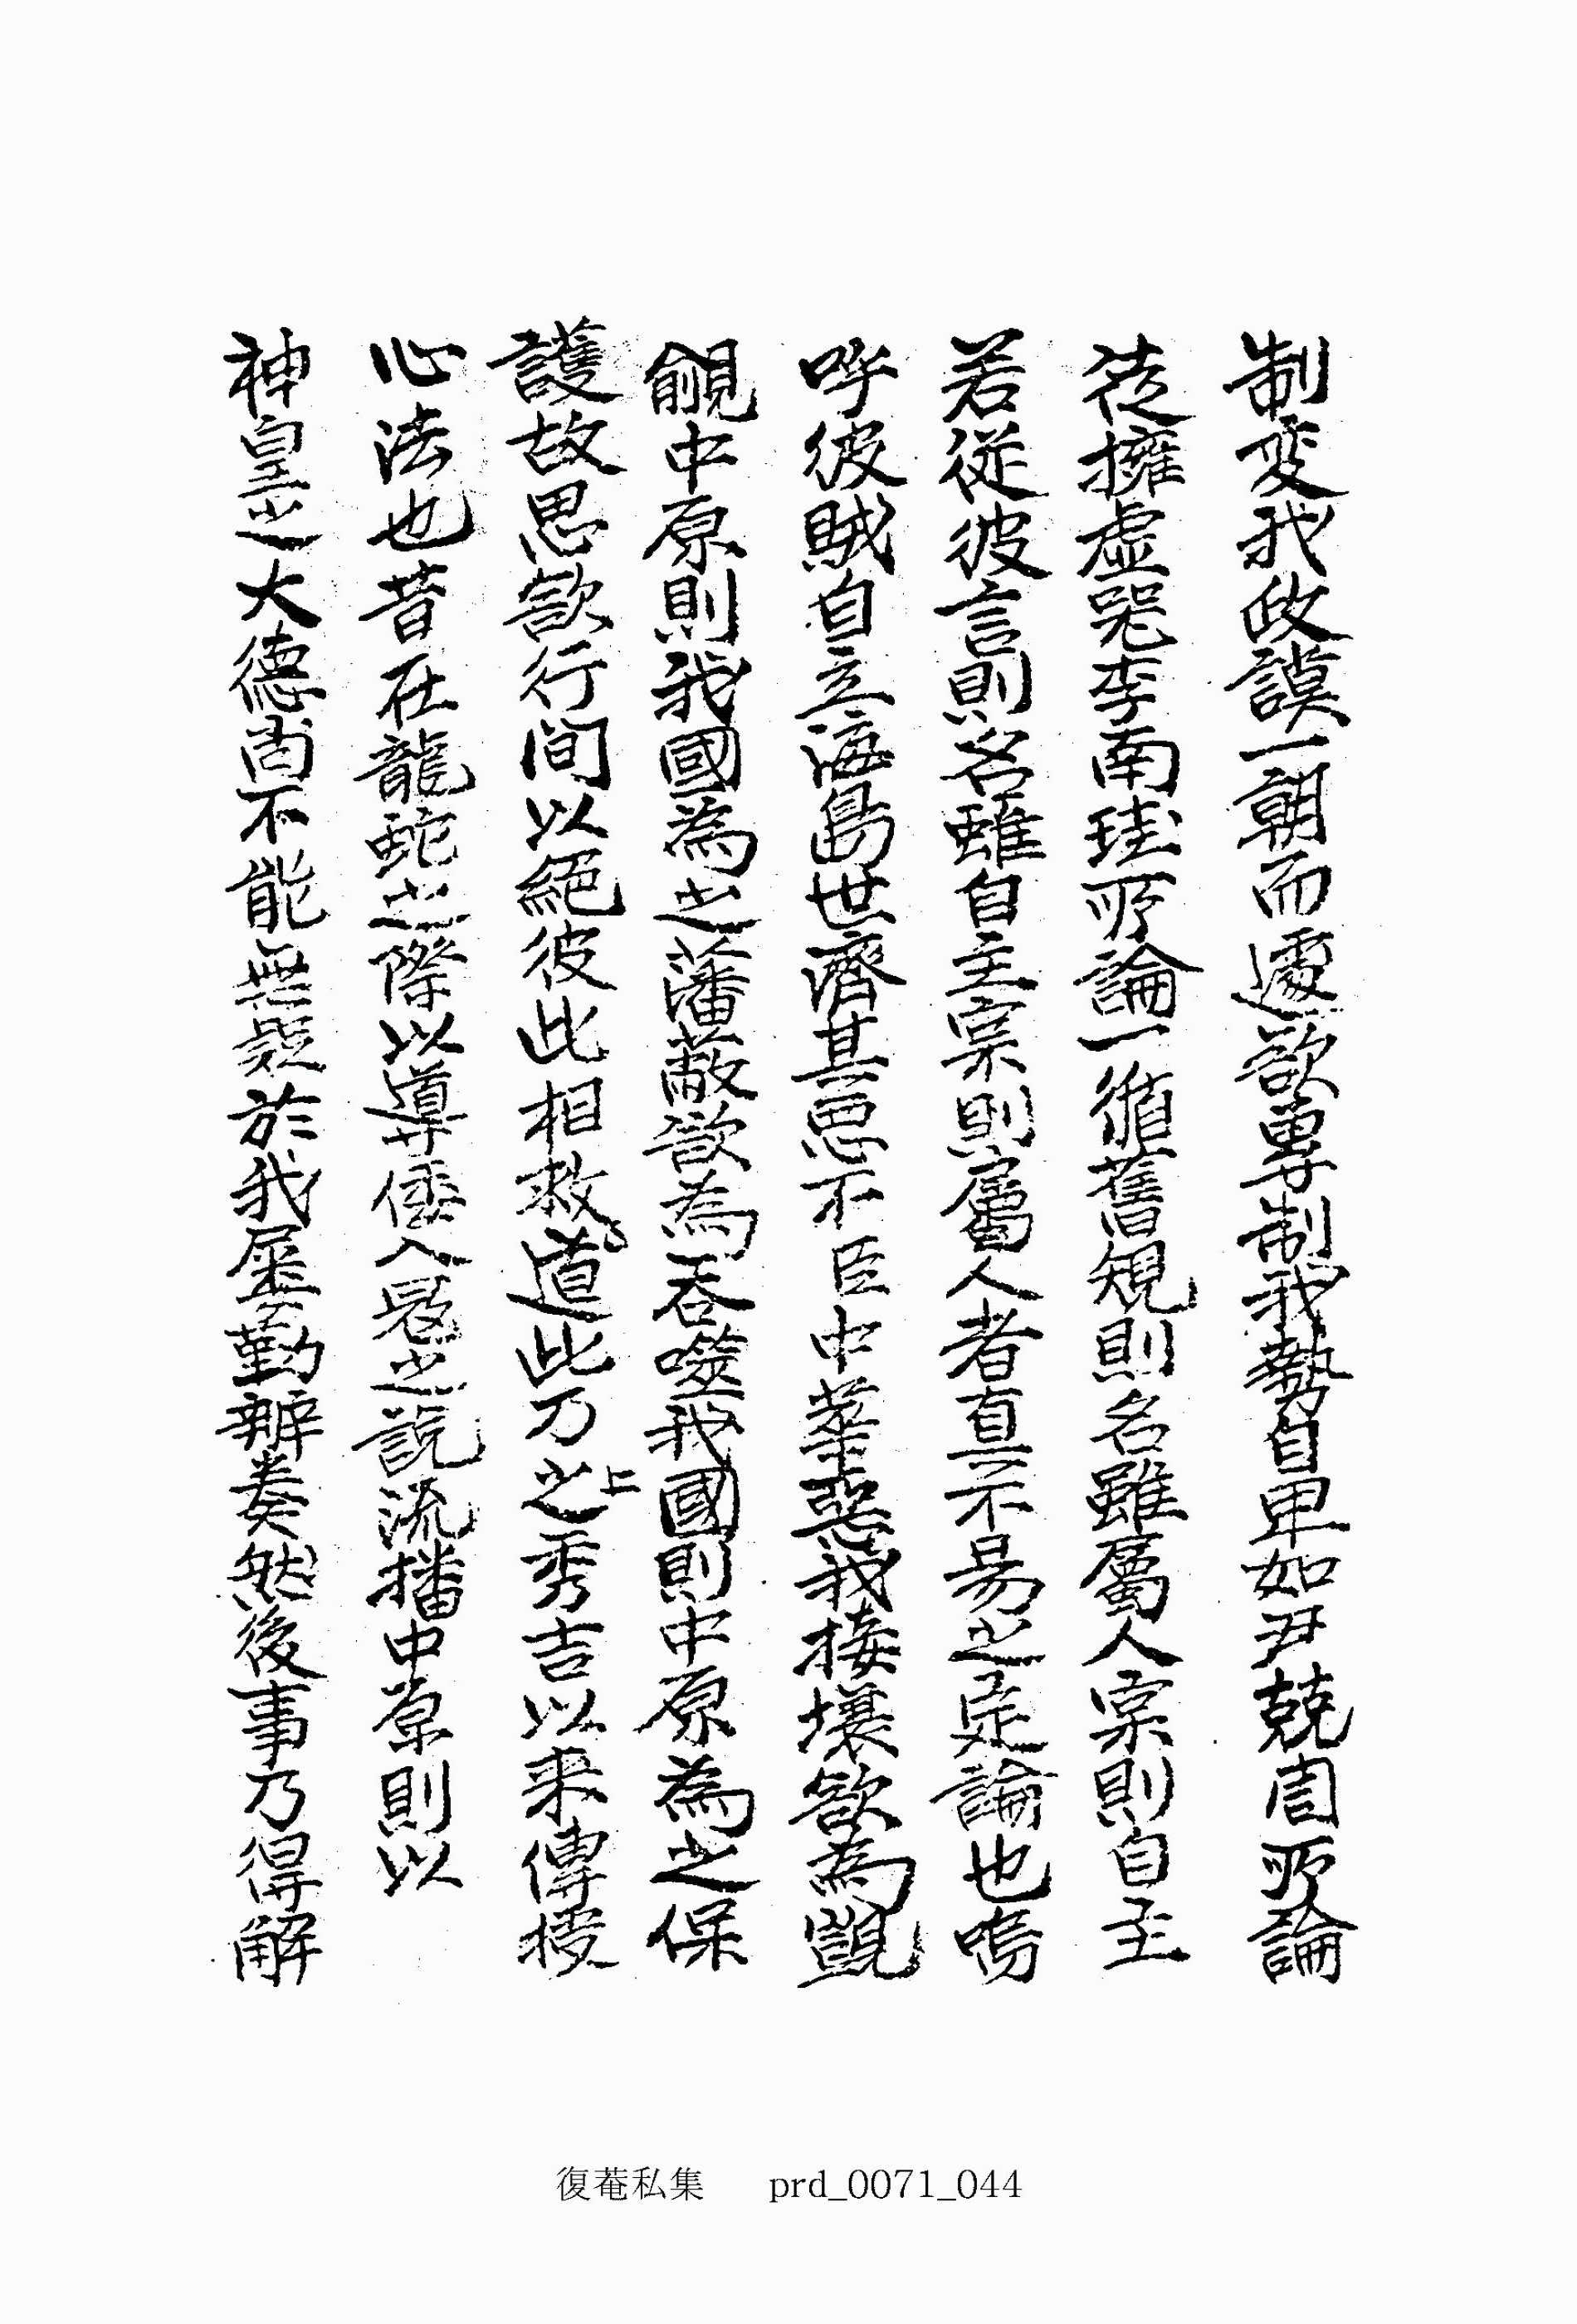 制変我政謨一朝而遽欲專制我勢自卑如尹兢周所論
徒擁虛器李南珪所論一循舊規則名雖屬人宲則自主
若從彼言則名雖自主宲則屬人者真不易之定論也嗚
呼彼賊自立海島世濟其悪不臣中華惡我接壤欲為覬
覦中原則我國為之藩蔽欲為吞噬我國則中原為之保
護故思欲行間以絕彼此相救之道此乃上之秀吉以来傳授
心法也昔在龍蛇之際以導倭入寇之說流播中原則以
神皇之大德尚不能無疑於我屢勤辨奏然後事乃得解
復菴私集 prd_0071_044